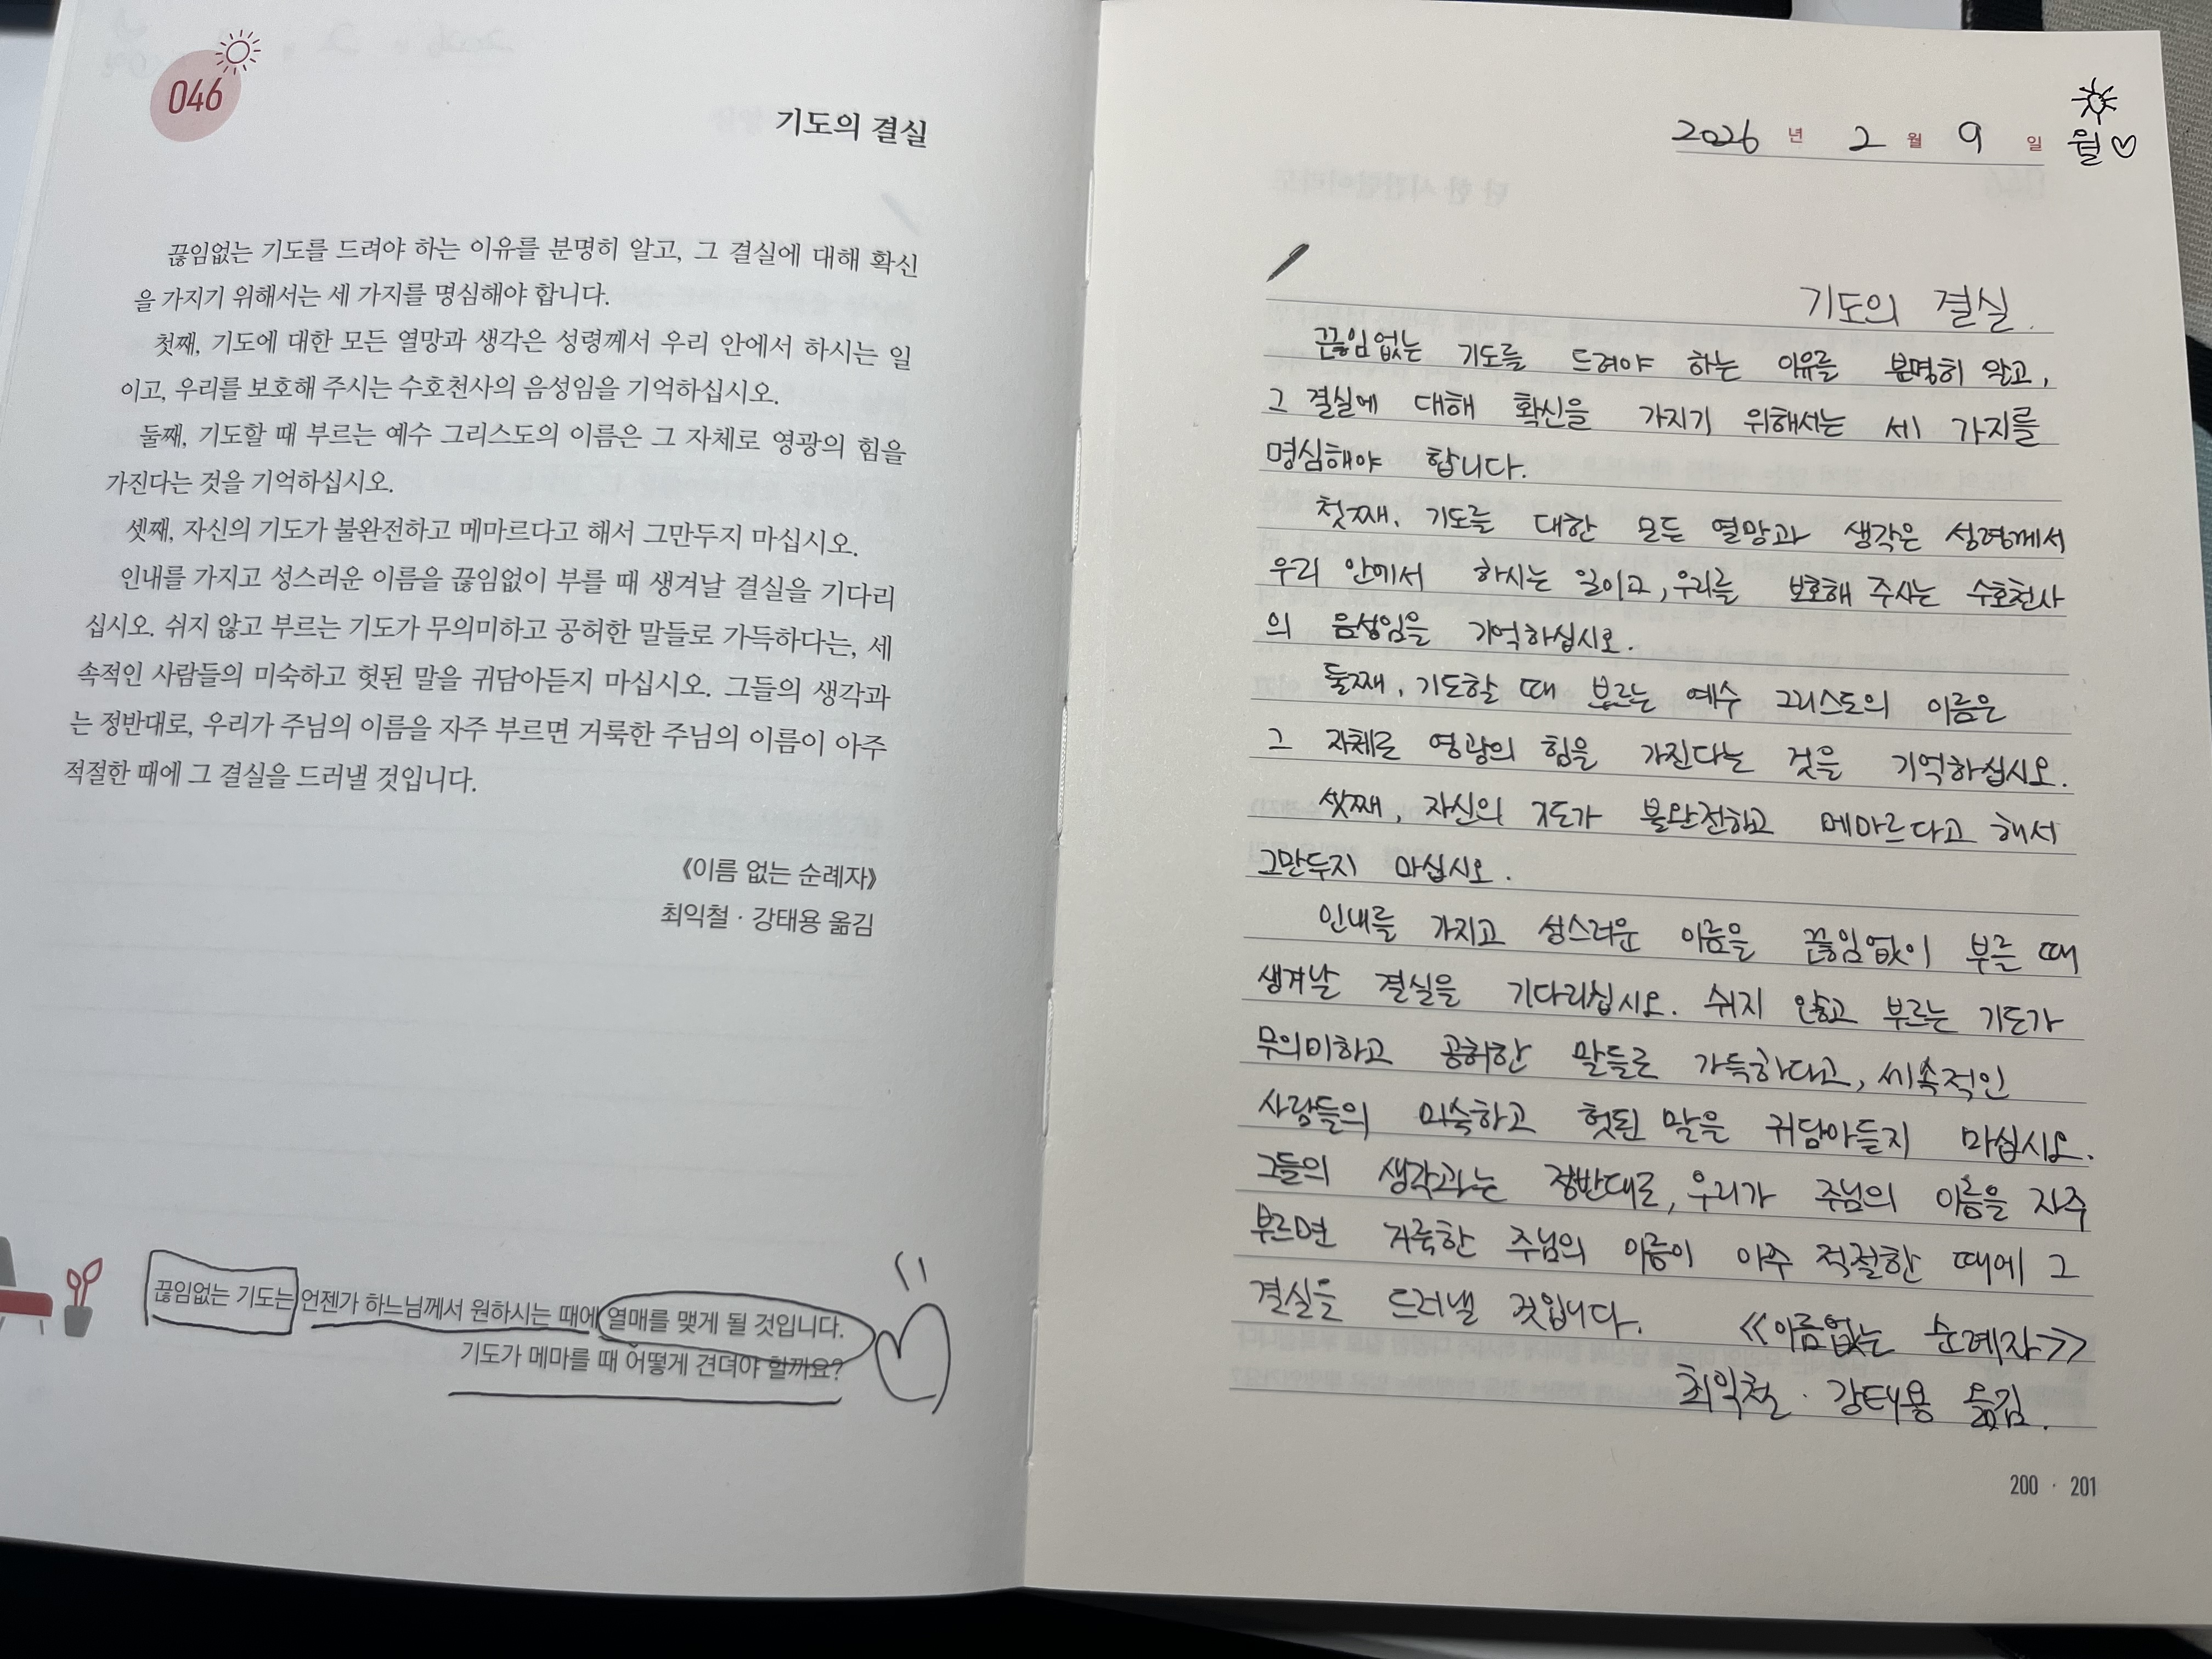 046
기도의 결실
끊임없는 기도를 드려야 하는 이유를 분명히 알고, 그 결실에 대해 확신
을 가지기 위해서는 세 가지를 명심해야 합니다.
첫째, 기도에 대한 모든 열망과 생각은 성령께서 우리 안에서 하시는 일
이고, 우리를 보호해 주시는 수호천사의 음성임을 기억하십시오.
둘째, 기도할 때 부르는 예수 그리스도의 이름은 그 자체로 영광의 힘을
가진다는 것을 기억하십시오.
셋째, 자신의 기도가 불완전하고 메마르다고 해서 그만두지 마십시오.
인내를 가지고 성스러운 이름을 끊임없이 부를 때 생겨날 결실을 기다리
십시오. 쉬지 않고 부르는 기도가 무의미하고 공허한 말들로 가득하다는, 세
속적인 사람들의 미숙하고 헛된 말을 귀담아듣지 마십시오. 그들의 생각과
는 정반대로, 우리가 주님의 이름을 자주 부르면 거룩한 주님의 이름이 아주
적절한 때에 그 결실을 드러낼 것입니다.
《이름 없는 순례자》
최익철 · 강태용 옮김
끊임없는 기도는 언젠가 하느님께서 원하시는 때에 열매를 맺게 될 것입니다.
기도가 메마를 때 어떻게 견뎌야 할까요?
2026 년 2 월 9 일 월♡
기도의 결실.
끊임없는 기도를 드려야 하는 이유를 분명히 알고,
그 결실에 대해 확신을 가지기 위해서는 세 가지를
명심해야 합니다.
첫째, 기도를 대한 모든 열망과 생각은 성령께서
우리 안에서 하시는 일이고, 우리를 보호해 주시는 수호천사
의 음성임을 기억하십시오.
둘째, 기도할 때 부르는 예수 그리스도의 이름은
그 자체로 영광의 힘을 가진다는 것을 기억하십시오.
셋째, 자신의 기도가 불완전하고 메마르다고 해서
그만두지 마십시오.
인내를 가지고 성스러운 이름을 끊임없이 부를 때
생겨날 결실을 기다리십시오. 쉬지 않고 부르는 기도가
무의미하고 공허한 말들로 가득하다고, 세속적인
사람들의 미숙하고 헛된 말을 귀담아듣지 마십시오.
그들의 생각과는 정반대로, 우리가 주님의 이름을 자주
부르면 거룩한 주님의 이름이 아주 적절한 때에 그
결실을 드러낼 것입니다. <<이름없는 순례자>>
최익철 · 강태용 옮김.
200 · 201